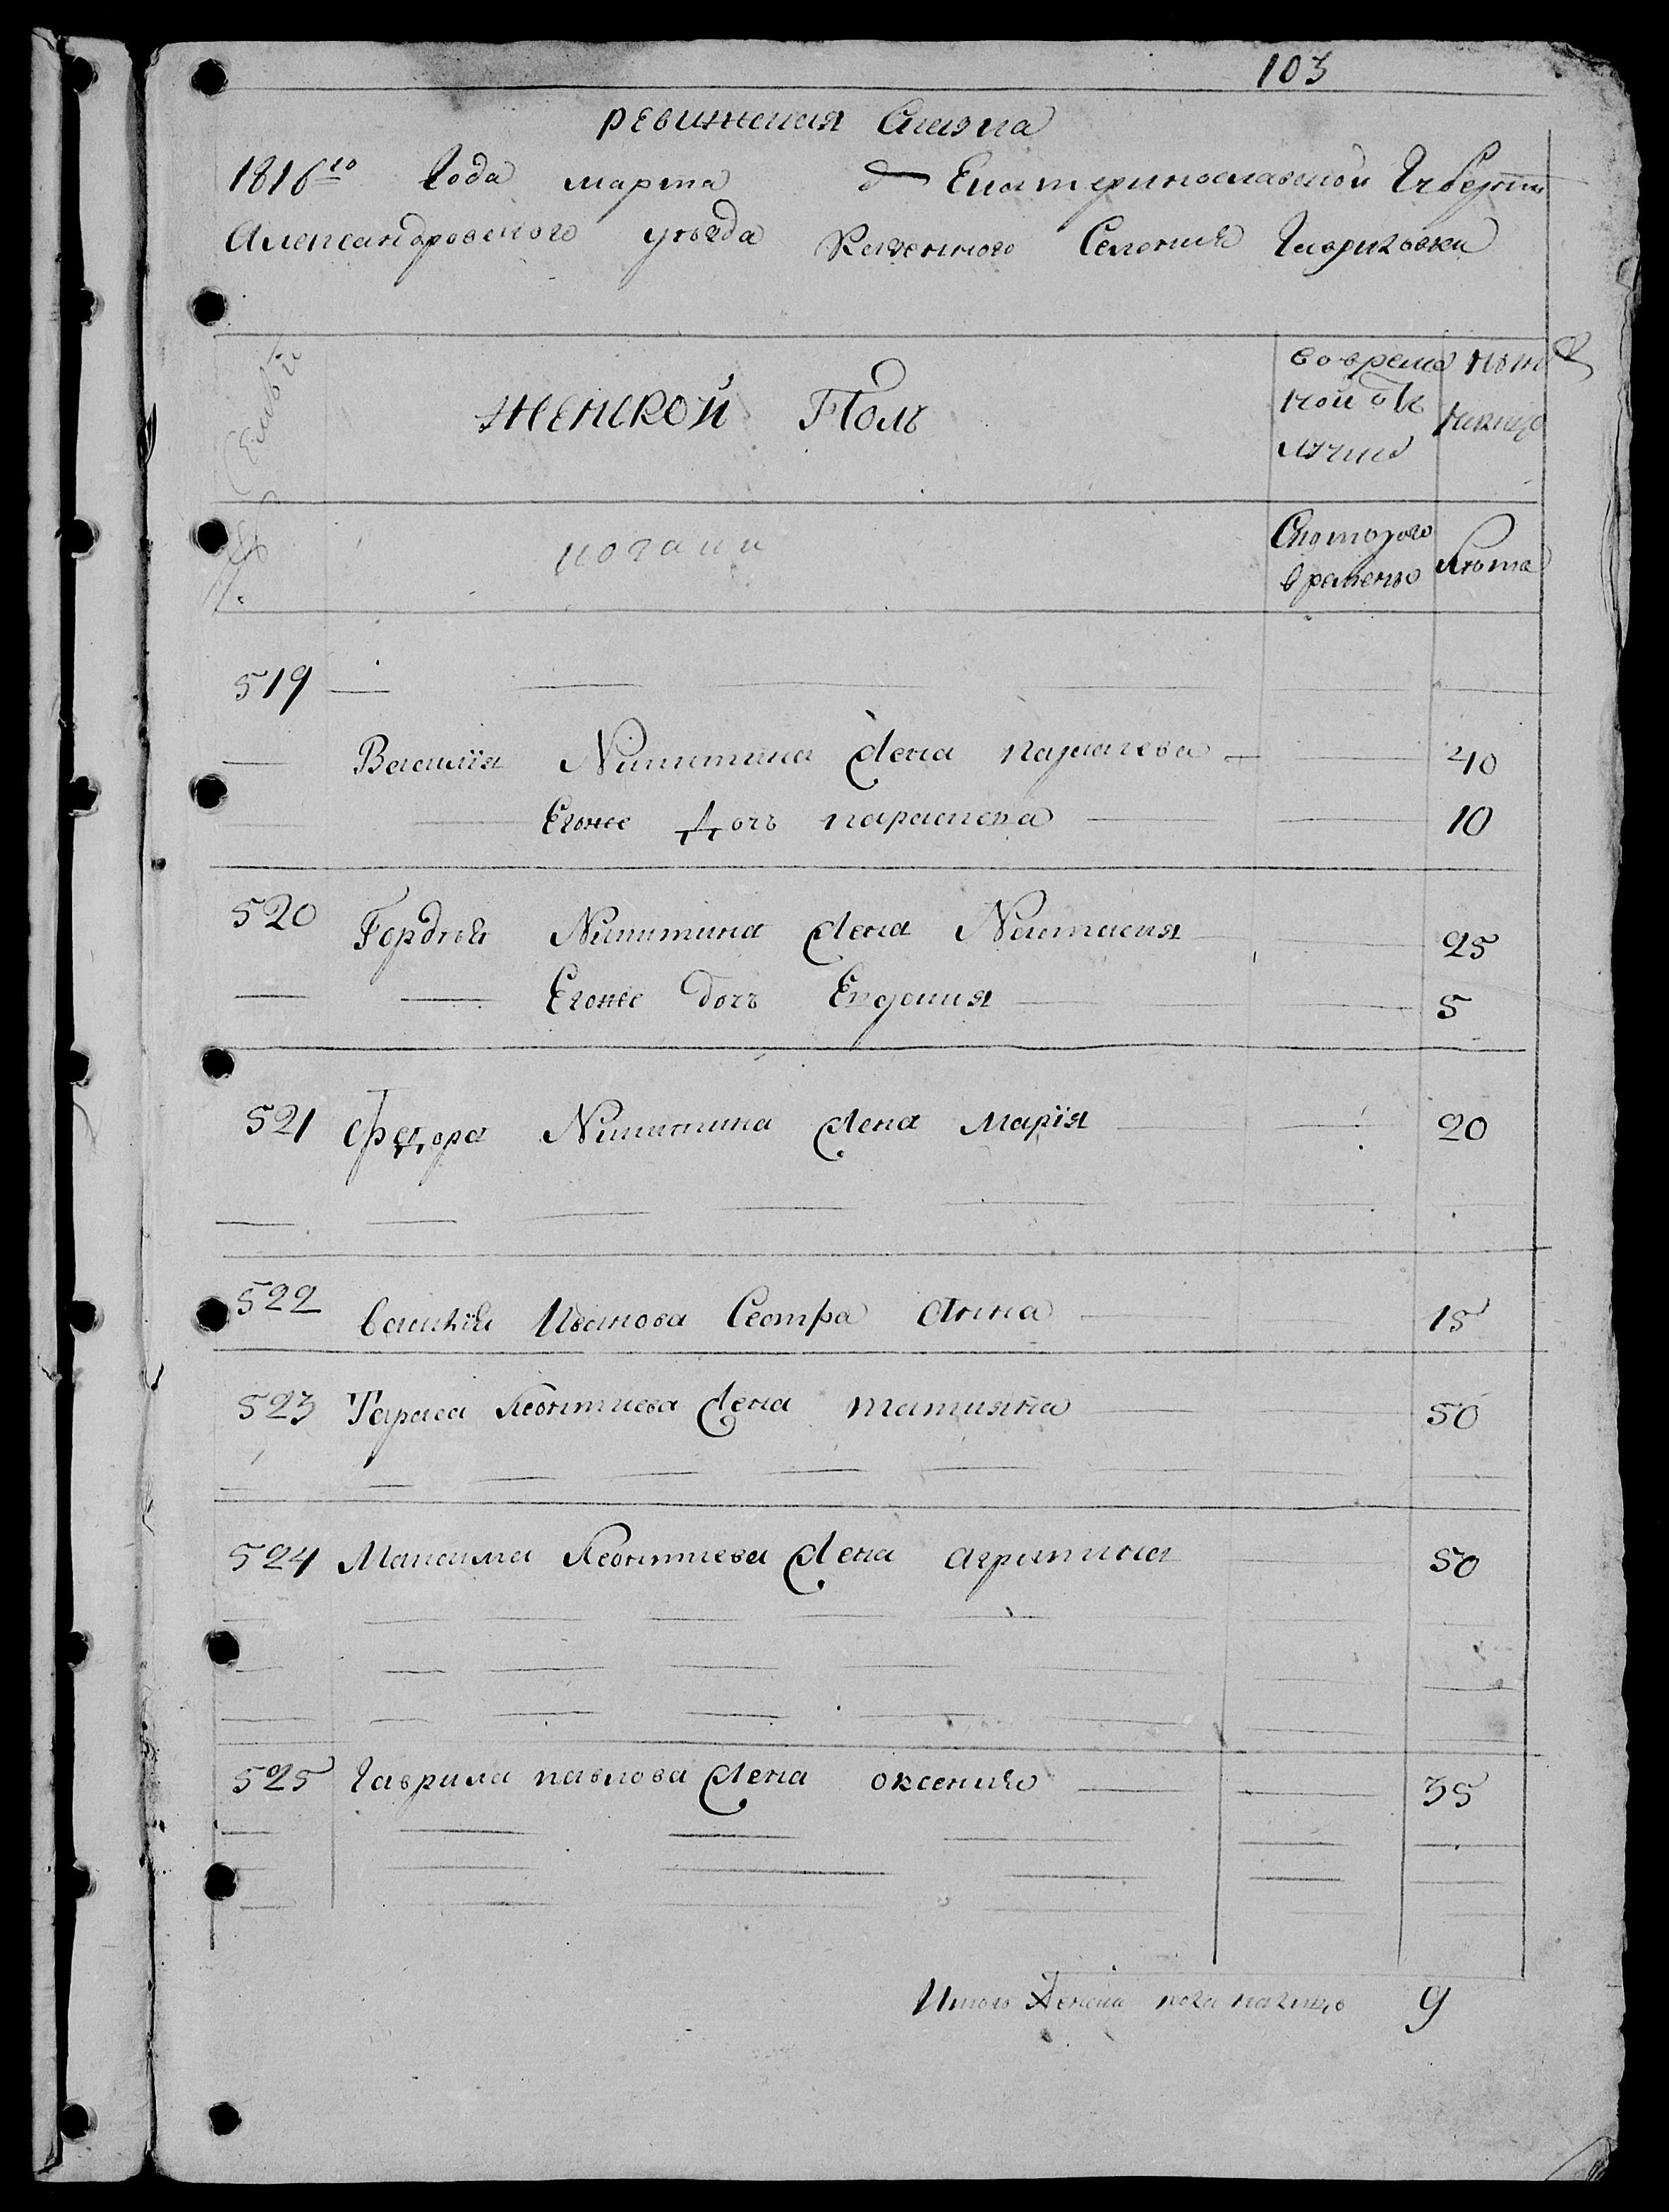 103
ревижская Сказка
1816го Года марта д Екатеринославской Губернии
Александровского уезда Казенного Селения Гавриловки
Семьи
Женской Полъ
во время
ной отлучки
ныне
налицо
№.
Скоторого времени
Лета
519
Василия Никитина Жена параскева 40
Егоже Дочь параскева 10
520 Гордѣя Никитина Жена Настасия 25
Егоже дочь Евдокия 5
521 Федора Никитина Жена Марїя 20
522 василїя Иванова Сестра Анна 15
523 Тараса Леонтиева Жена татияна 50
524 Максима Леонтиева Жена агрипина 50
525 Гаврила павлова Жена оксения 35
Итого Женска пола налицо 9